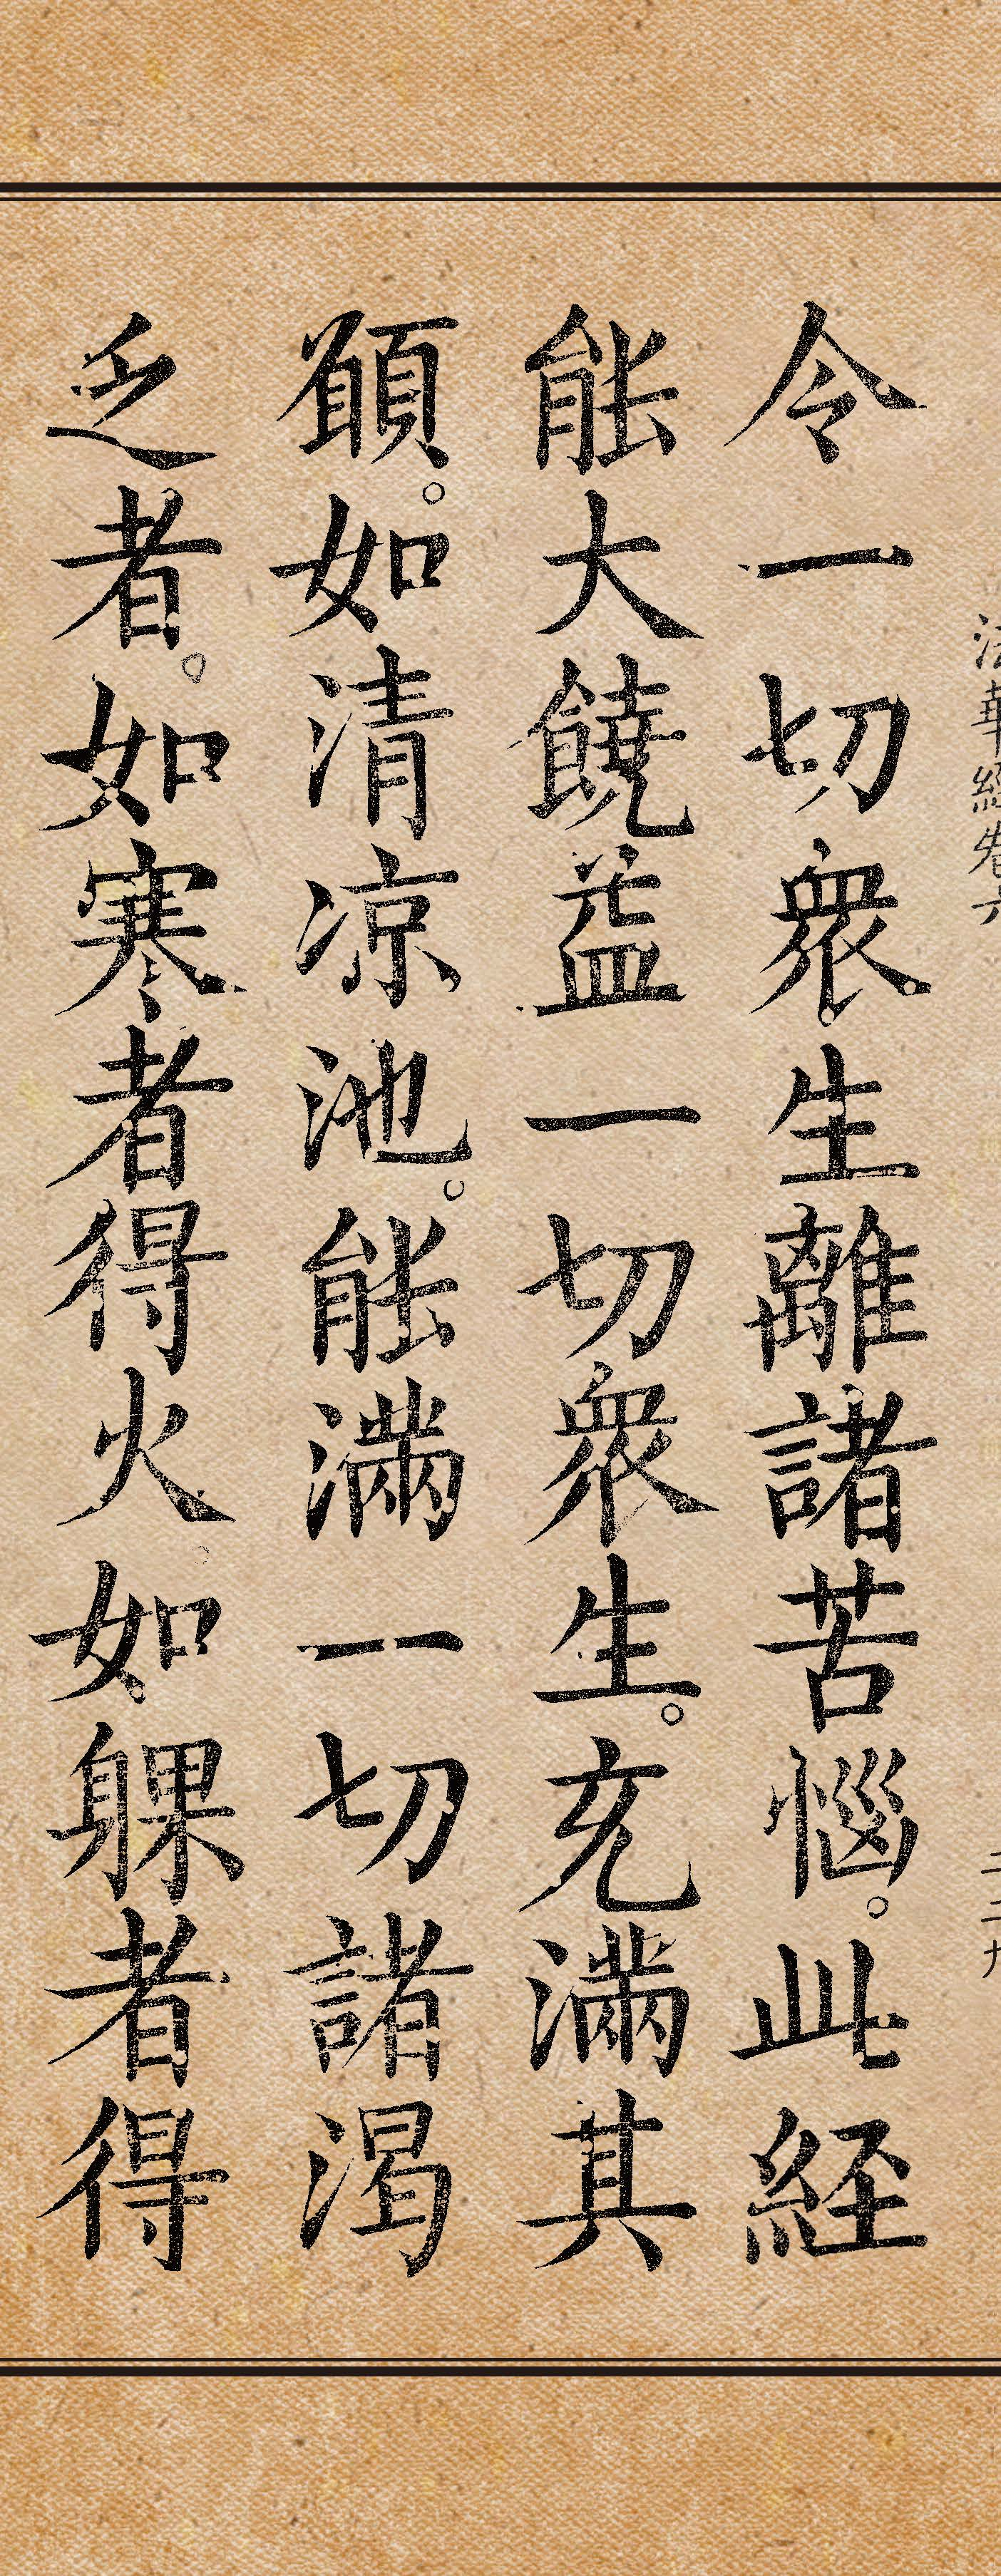 法華經卷六 二二九
令一切衆生離諸苦惱。此経
能大饒益一切衆生。充滿其
願。如清凉池。能滿一切諸渴
乏者。如寒者得火。如躶者得